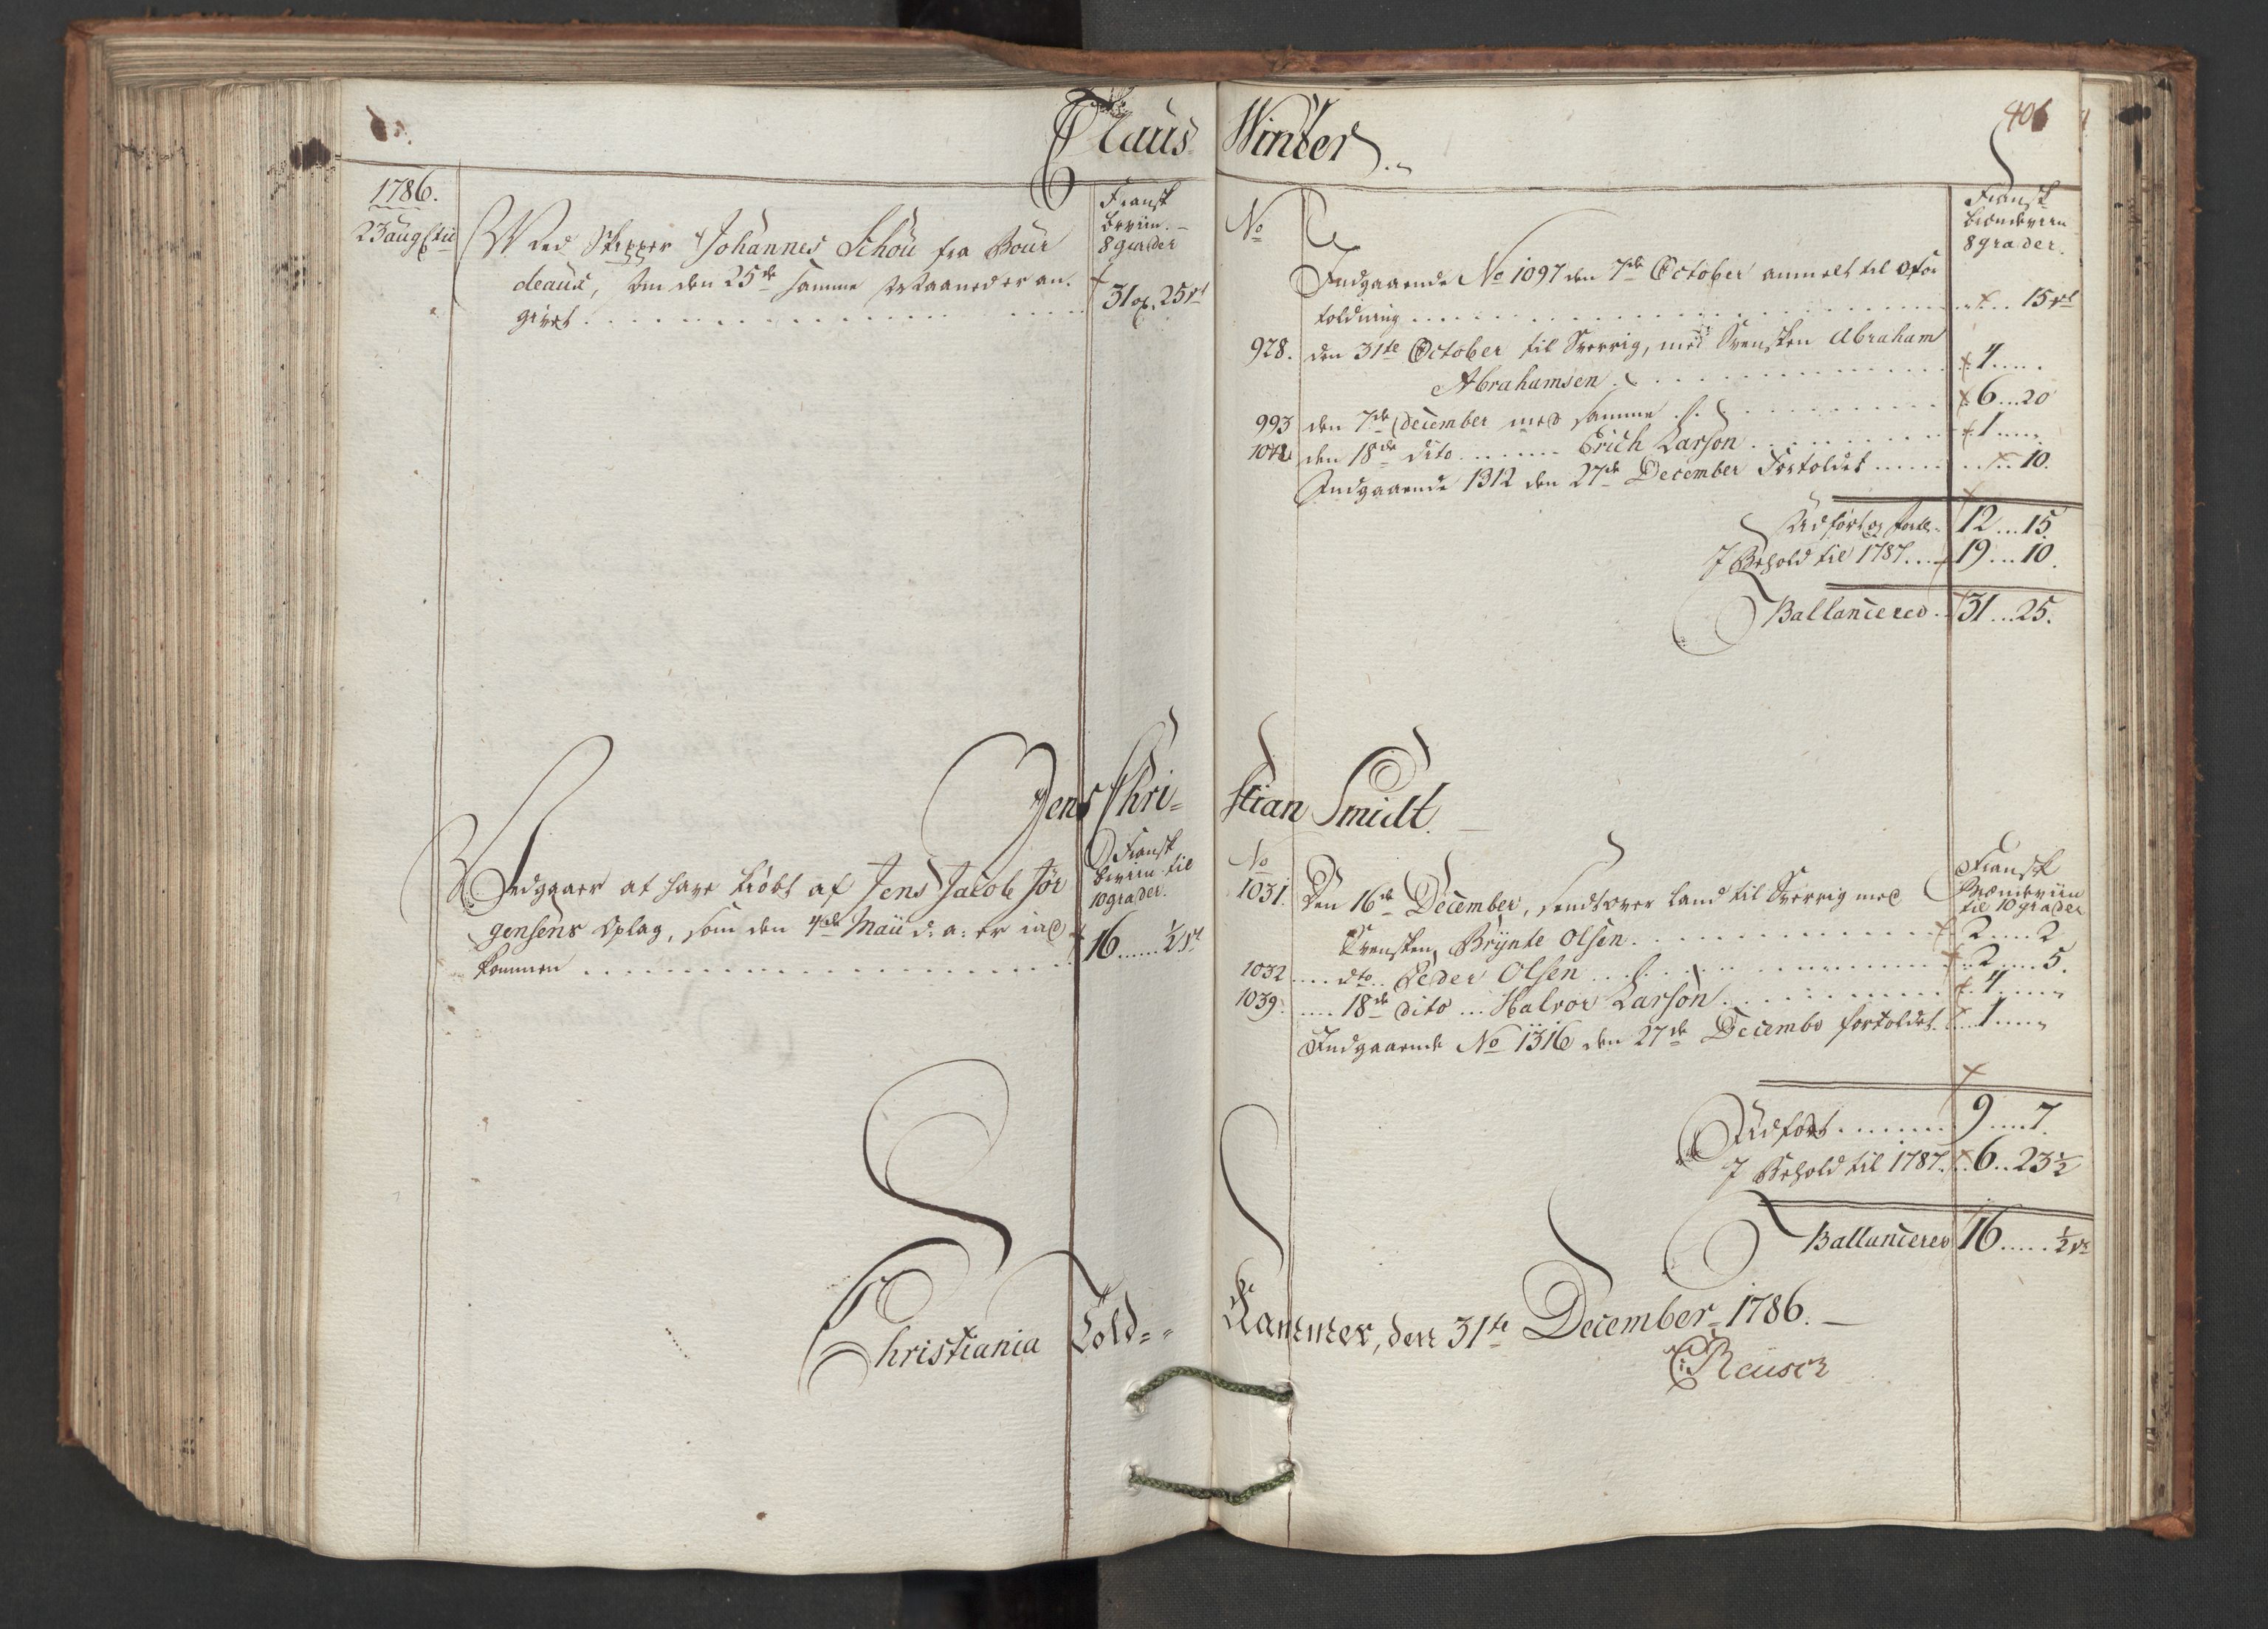 Claus Winter
406
1786.
23 augusti
Fransk
brviin.
8 grader
Med Skipper Johannes Schou fra Bour
deaux, som den 25de samme Maaned er an-
givet 31 ox. 25 rt
No
Fransk
brændeviin
8 grader.
Indgaaende No 1097 den 7de October anmelt til
toldning 15 rt
928. den 31te October til Sverrig, med Svensken Abraham
Abrahamsen 4
993 den 7de December med samme 6 20
den 18de dito Erich Larson 1
Indgaaende 1312 den 27de December Fortoldet 10.
Udført og fort. 12 15
I Behold til 1787 19 10.
Ballancered 31 25.
Jens Chri=
stian Smidt.
Fransk
brviin til
10 grader.
Indgaaer at have kiøbt af Jens Jacob Jør
gensens Oplag, som den 4de Maii d: a: er ind
kommen 16 ½ rt
No
Fransk
Brændeviin
til 10 grader
1031. Den 16de December, sendt over land til Sverrig med
Svensken Brynte Olsen 2 2
1032 dto Peder Olsen 2 5.
1039. 18de dito Halvor Larson 4
Indgaaende No 1316 den 27de Decembr fortoldet 1
Udført 9 7
I Behold til 1787. 6 23½
Ballancered 16 ½ rt
Christiania Told=
Kammer, den 31te December 1786.
C: Reusch